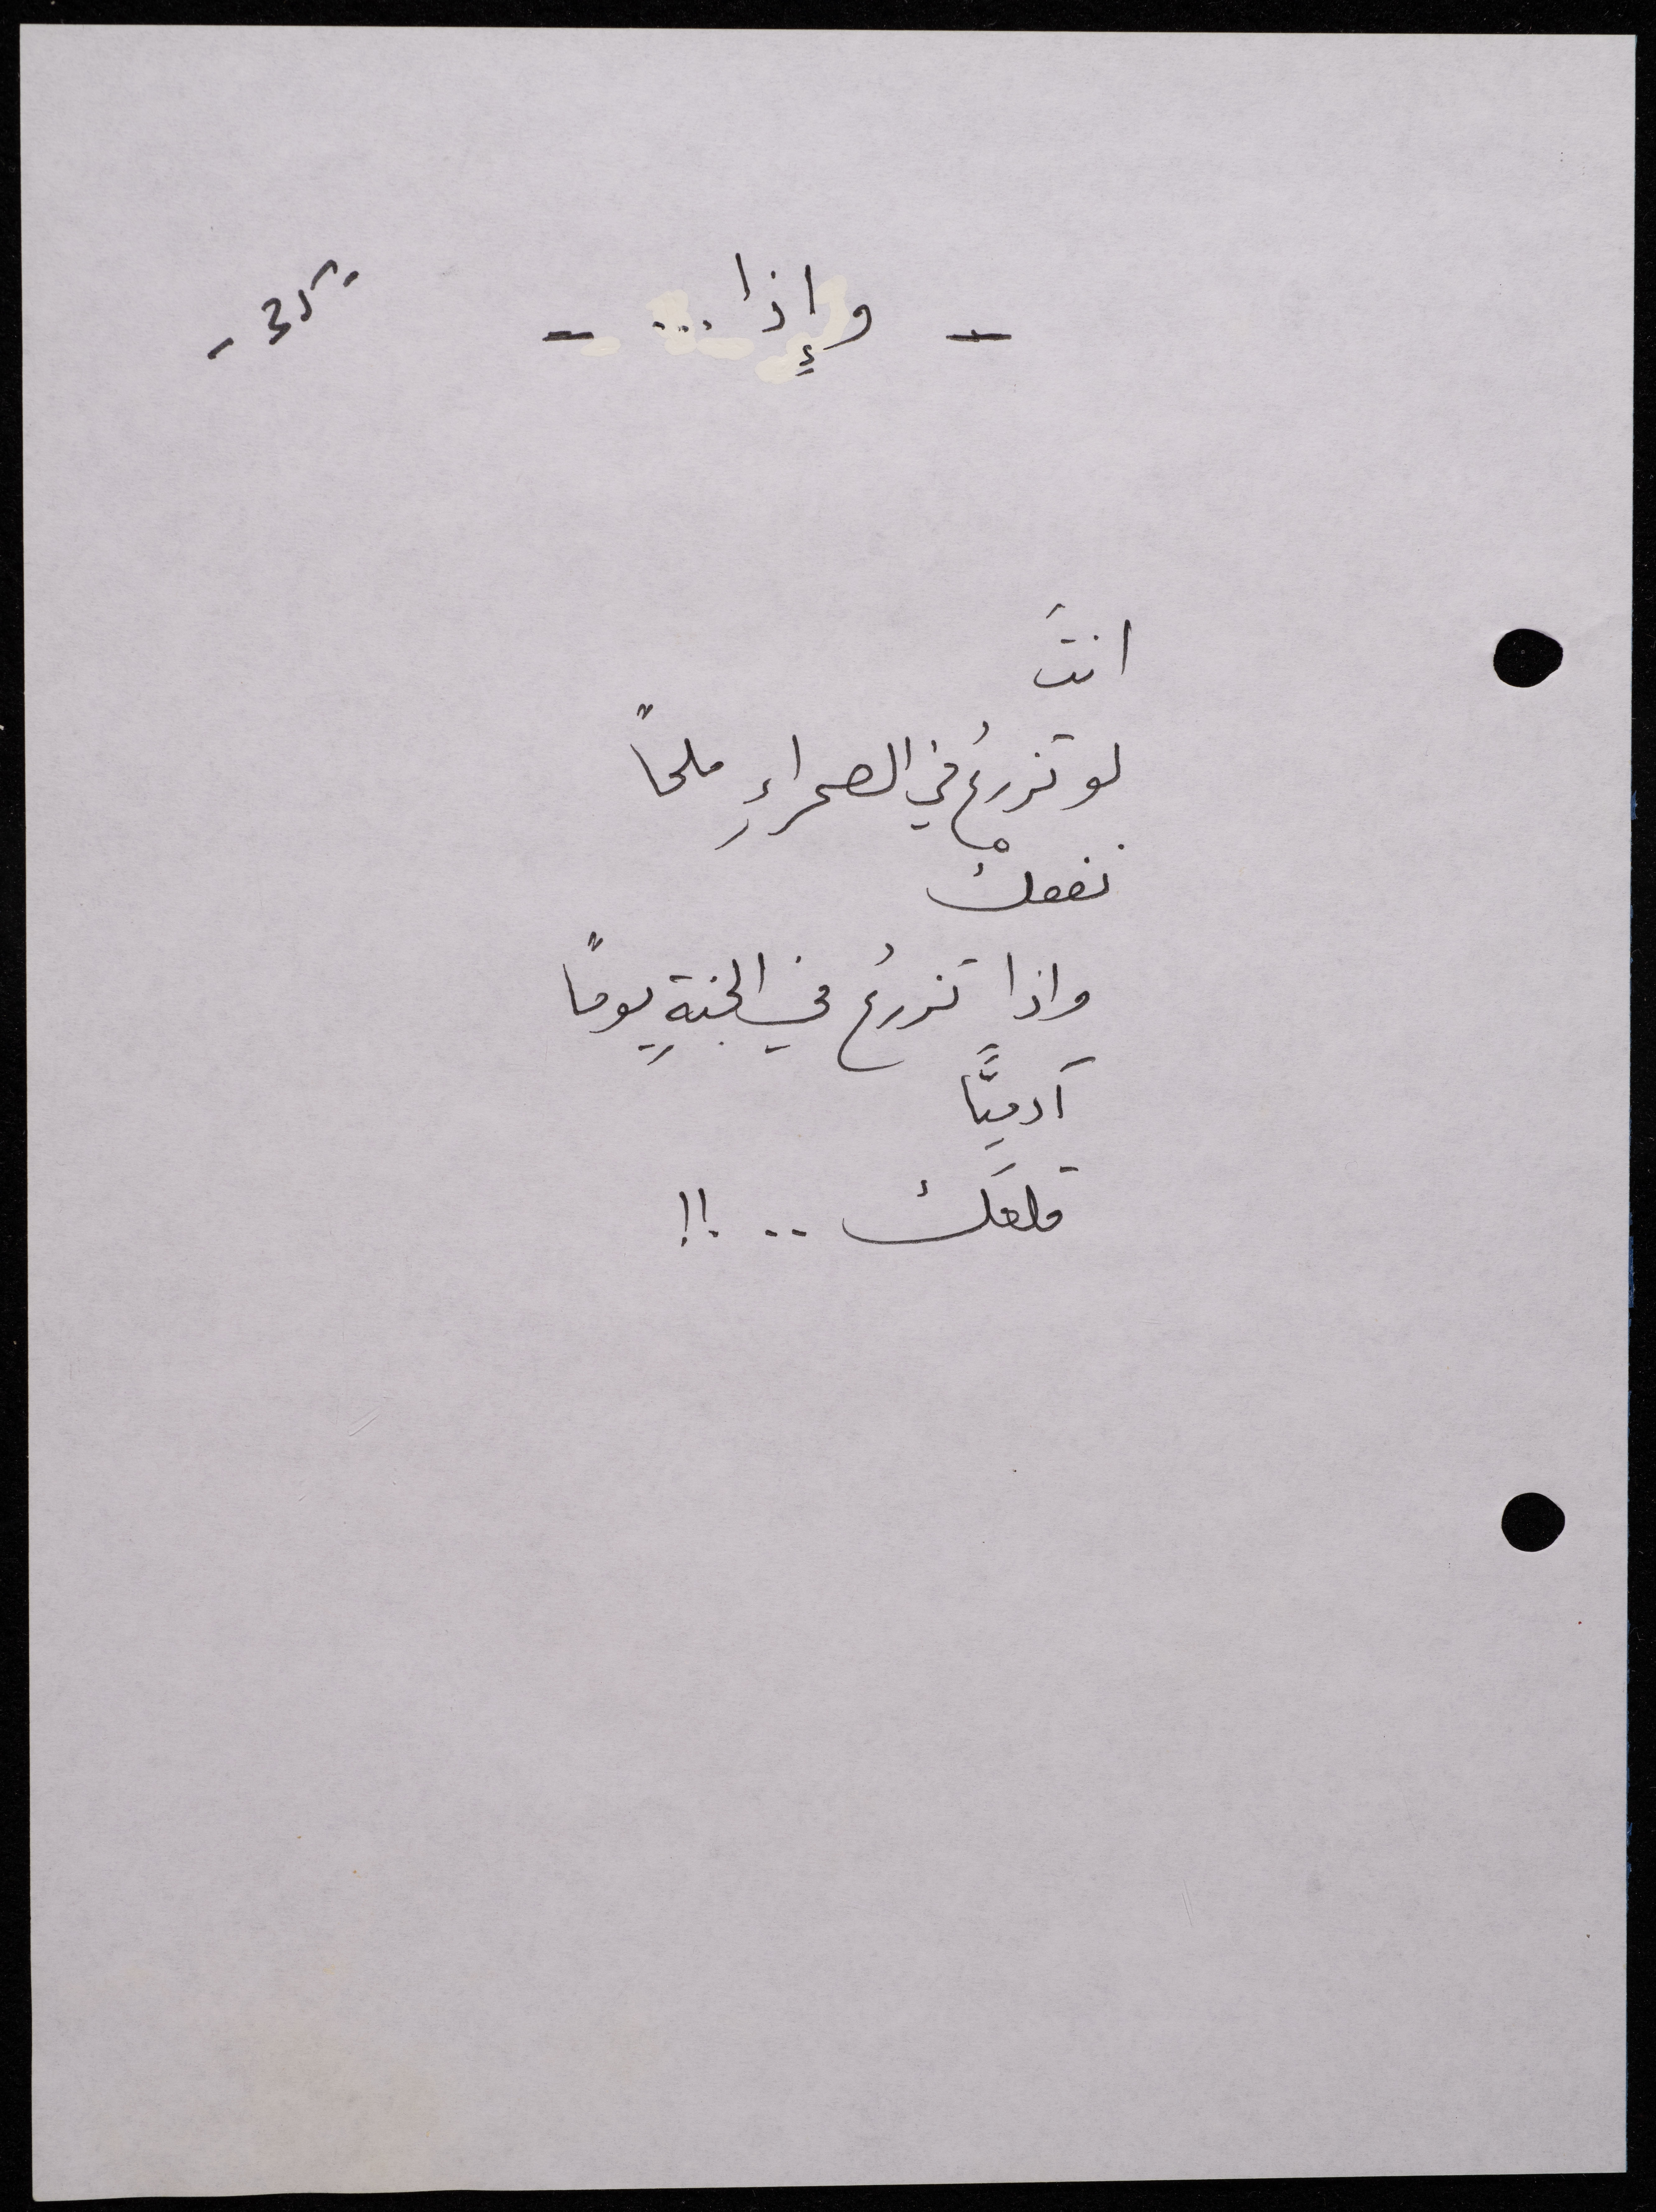 - وإِذا ... -
- 35 -
انتَ
لو تزرعُ في الصحراءِ ملحاً
نفعكْ
واذا تزرعُ في الجنةِ يوماً
آدمِيًّا
قلعَكْ .. !!